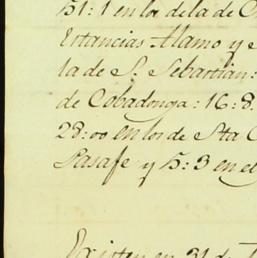 51: 1 en los de la de C
Estancias Alamo y e
la de S. Sebastian:
de Cobadonga: 16: 8.
28:00 en los de Sta C
Pasafe y 5: 3 en el
Existen en 31 de